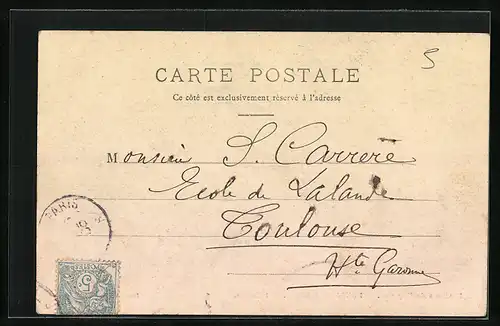 5
CARTE POSTALE
Ce côté est exclusivement réservé à l'adresse
Monsieur S. Carrère
Ecole de Lalande
Toulouse
Hte Garonne
PARIS
5